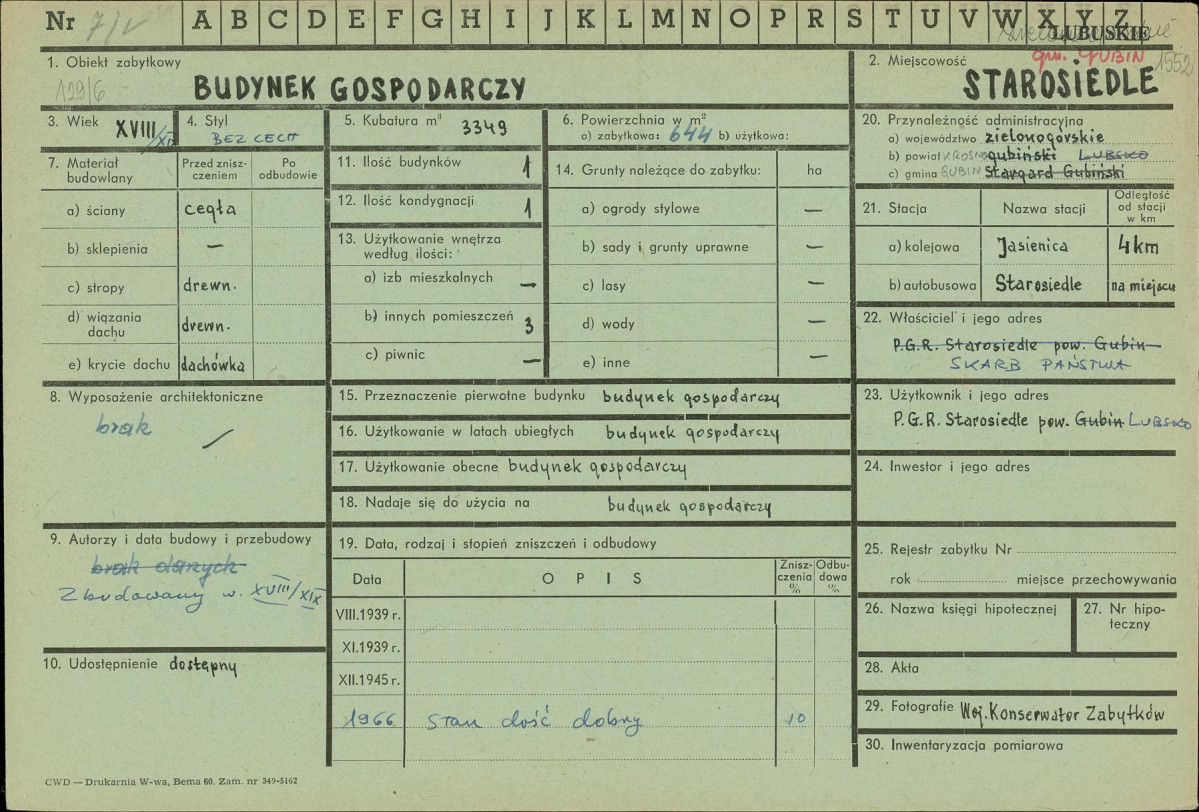 Nr 7/V A B C D E F G H I J K L M N O P R S T U V W X Y Z
LUBUSKIE
gm. GUBIN 1552
1. Obiekt zabytkowy
129/6
BUDYNEK GOSPODARCZY
2. Miejscowość
STAROSIEDLE
3. Wiek XVIII/XIX
4. Styl
BEZ CECH
5. Kubatura m³ 3349
6. Powierzchnia w m²
a) zabytkowa: 644 b) użytkowa:
7. Materiał budowlany
Przed zniszczeniem
Po odbudowie
a) ściany cegła
b) sklepienia —
c) stropy drewn.
d) wiązania dachu drewn.
e) krycie dachu dachówka
8. Wyposażenie architektoniczne
brak
9. Autorzy i data budowy i przebudowy
brak danych
Zbudowany w. XVIII/XIX
10. Udostępnienie dostępny
11. Ilość budynków 1
12. Ilość kondygnacji 1
13. Użytkowanie wnętrza
według ilości:
a) izb mieszkalnych —
b) innych pomieszczeń 3
c) piwnic —
14. Grunty należące do zabytku: ha
a) ogrody stylowe —
b) sady i grunty uprawne —
c) lasy —
d) wody —
e) inne —
15. Przeznaczenie pierwotne budynku budynek gospodarczy
16. Użytkowanie w latach ubiegłych budynek gospodarczy
17. Użytkowanie obecne budynek gospodarczy
18. Nadaje się do użycia na budynek gospodarczy
19. Data, rodzaj i stopień zniszczeń i odbudowy
Data
O P I S
Zniszczenia %
Odbudowa %
VIII.1939 r.
XI.1939 r.
XII.1945 r.
1966 Stan dość dobry 10
20. Przynależność administracyjna
a) województwo zielonogórskie
b) powiat KROSNO gubiński LUBSKO
c) gmina GUBIN Stargard Gubiński
21. Stacja
Nazwa stacji
Odległość od stacji w km
a) kolejowa Jasienica 4km
b) autobusowa Starosiedle na miejscu
22. Właściciel i jego adres
P.G.R. Starosiedle pow. Gubin
SKARB PAŃSTWA
23. Użytkownik i jego adres
P.G.R. Starosiedle pow. Gubin LUBSKO
24. Inwestor i jego adres
25. Rejestr zabytku Nr
rok miejsce przechowywania
26. Nazwa księgi hipotecznej
27. Nr hipoteczny
28. Akta
29. Fotografie Woj. Konserwator Zabytków
30. Inwentaryzacja pomiarowa
CWD — Drukarnia W-wa, Bema 60. Zam. nr 349-5162